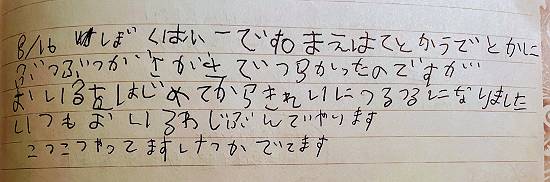 8/16 ぼくはいーです。まえはてとかうでとかに
ぶつぶつがさがさでつらかったのですが
おいるをはじめてからきれいにつるつるになりました
いつもおいるわじぶんでいやります
こつこつやってますけっかでてます